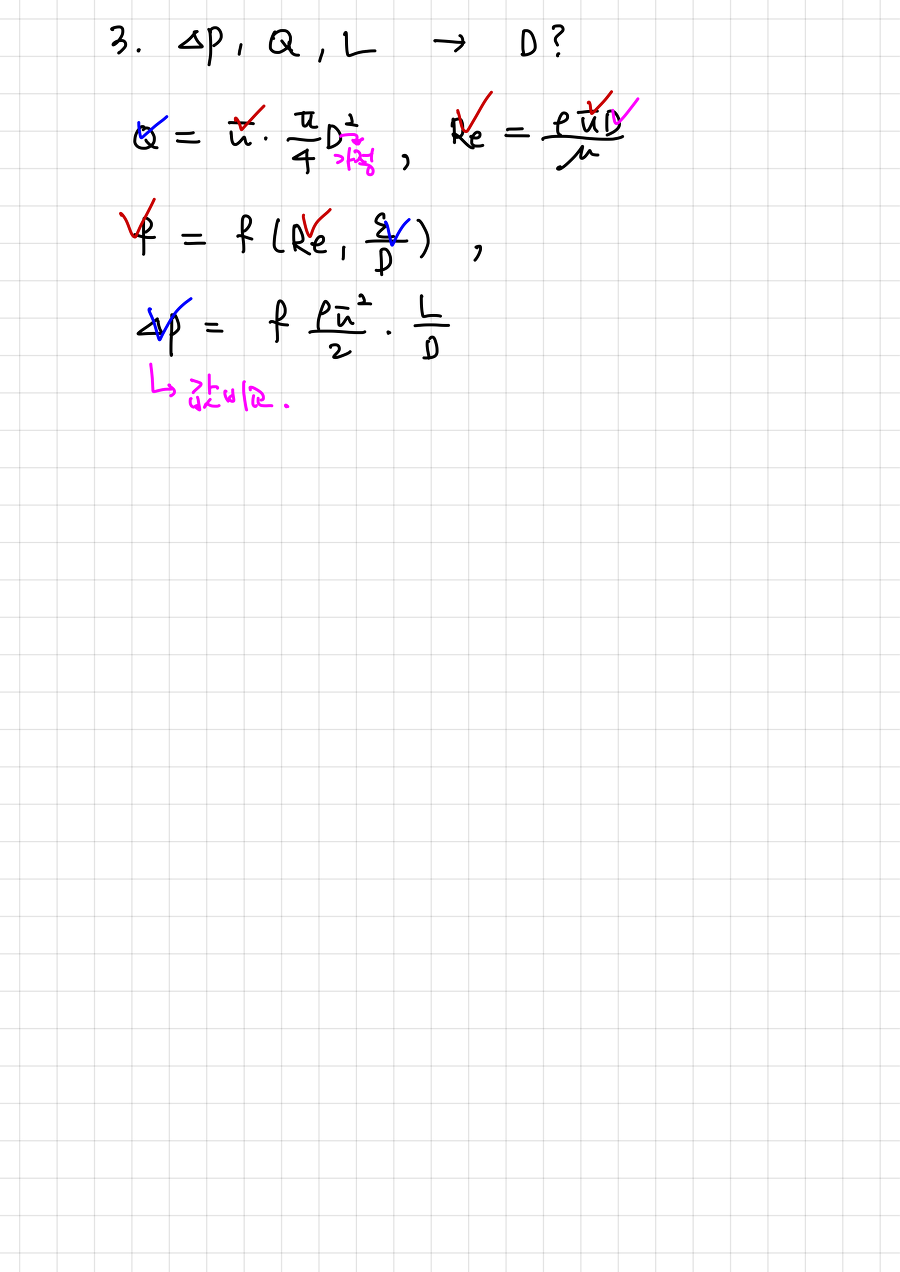 3. ΔP, Q, L → D?
Q = ū · π/4 D², Re = ρūD/μ
가정
f = f(Re, ε/D),
Δp = f ρū²/2 · L/D
↳ 값 비교.